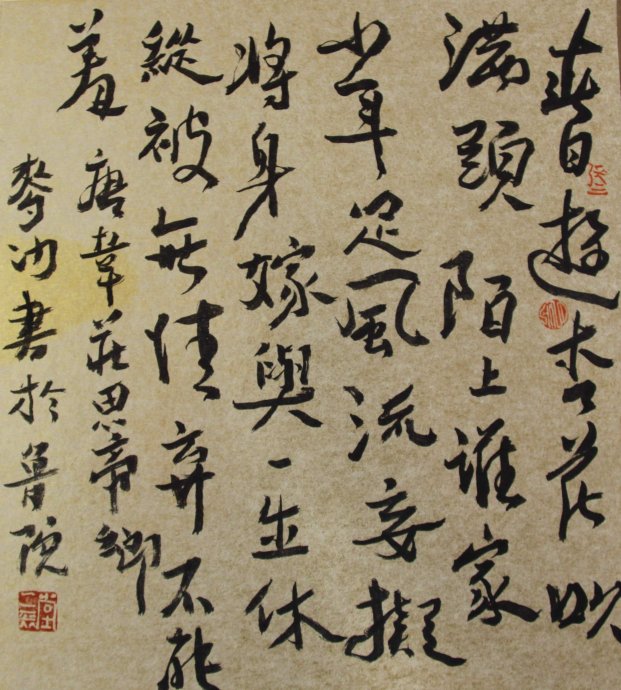 春日遊杏花吹
滿頭陌上誰家
少年足風流妾擬
將身嫁與一生休
縱被無情棄不能
羞 唐韋莊思帝鄉
書於魯院